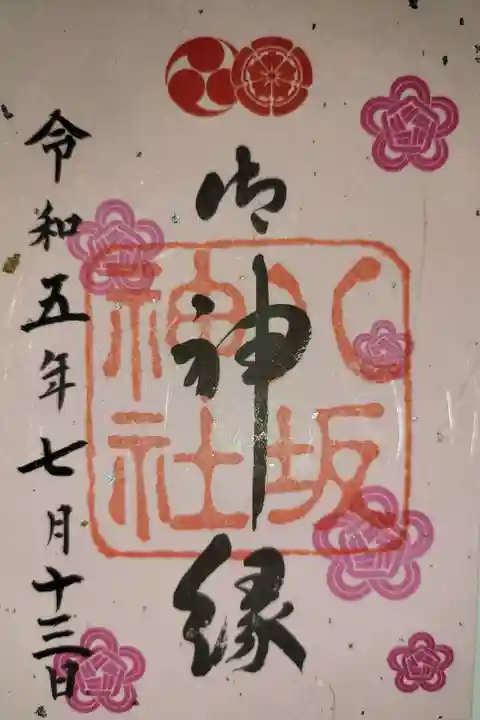 御神縁
八坂神社
令和五年七月十三日